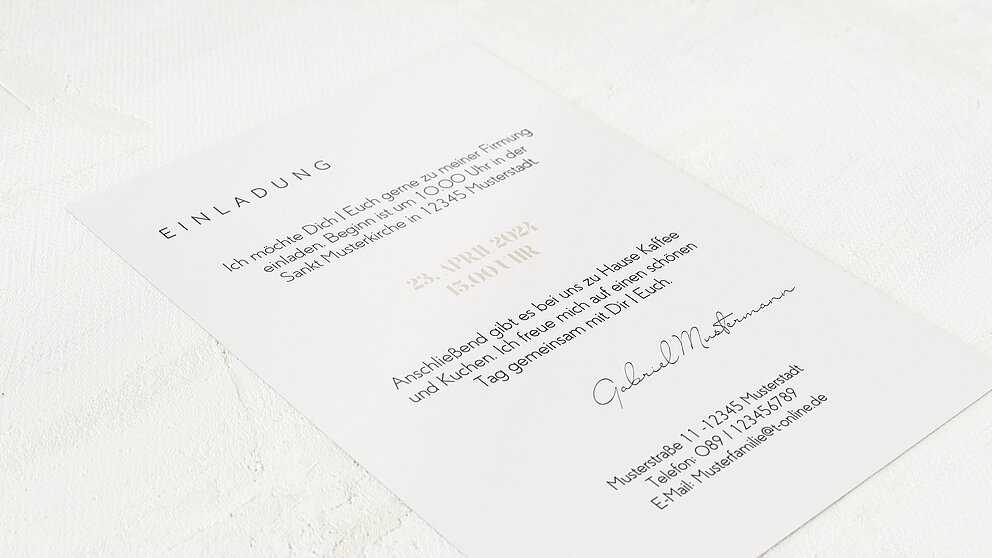 EINLADUNG
Ich möchte Dich | Euch gerne zu meiner Firmung
einladen. Beginn ist um 10.00 Uhr in der
Sankt Musterkirche in 12345 Musterstadt
23. APRIL 2023
15.00 UHR
Anschließend gibt es bei uns zu Hause Kaffee
und Kuchen. Ich freue mich auf einen schönen
Tag gemeinsam mit Dir | Euch.
Gabriel Mustermann
Musterstraße 11 -12345 Musterstadt
Telefon: 089 | 123456789
E-Mail: Musterfamilie@t-online.de